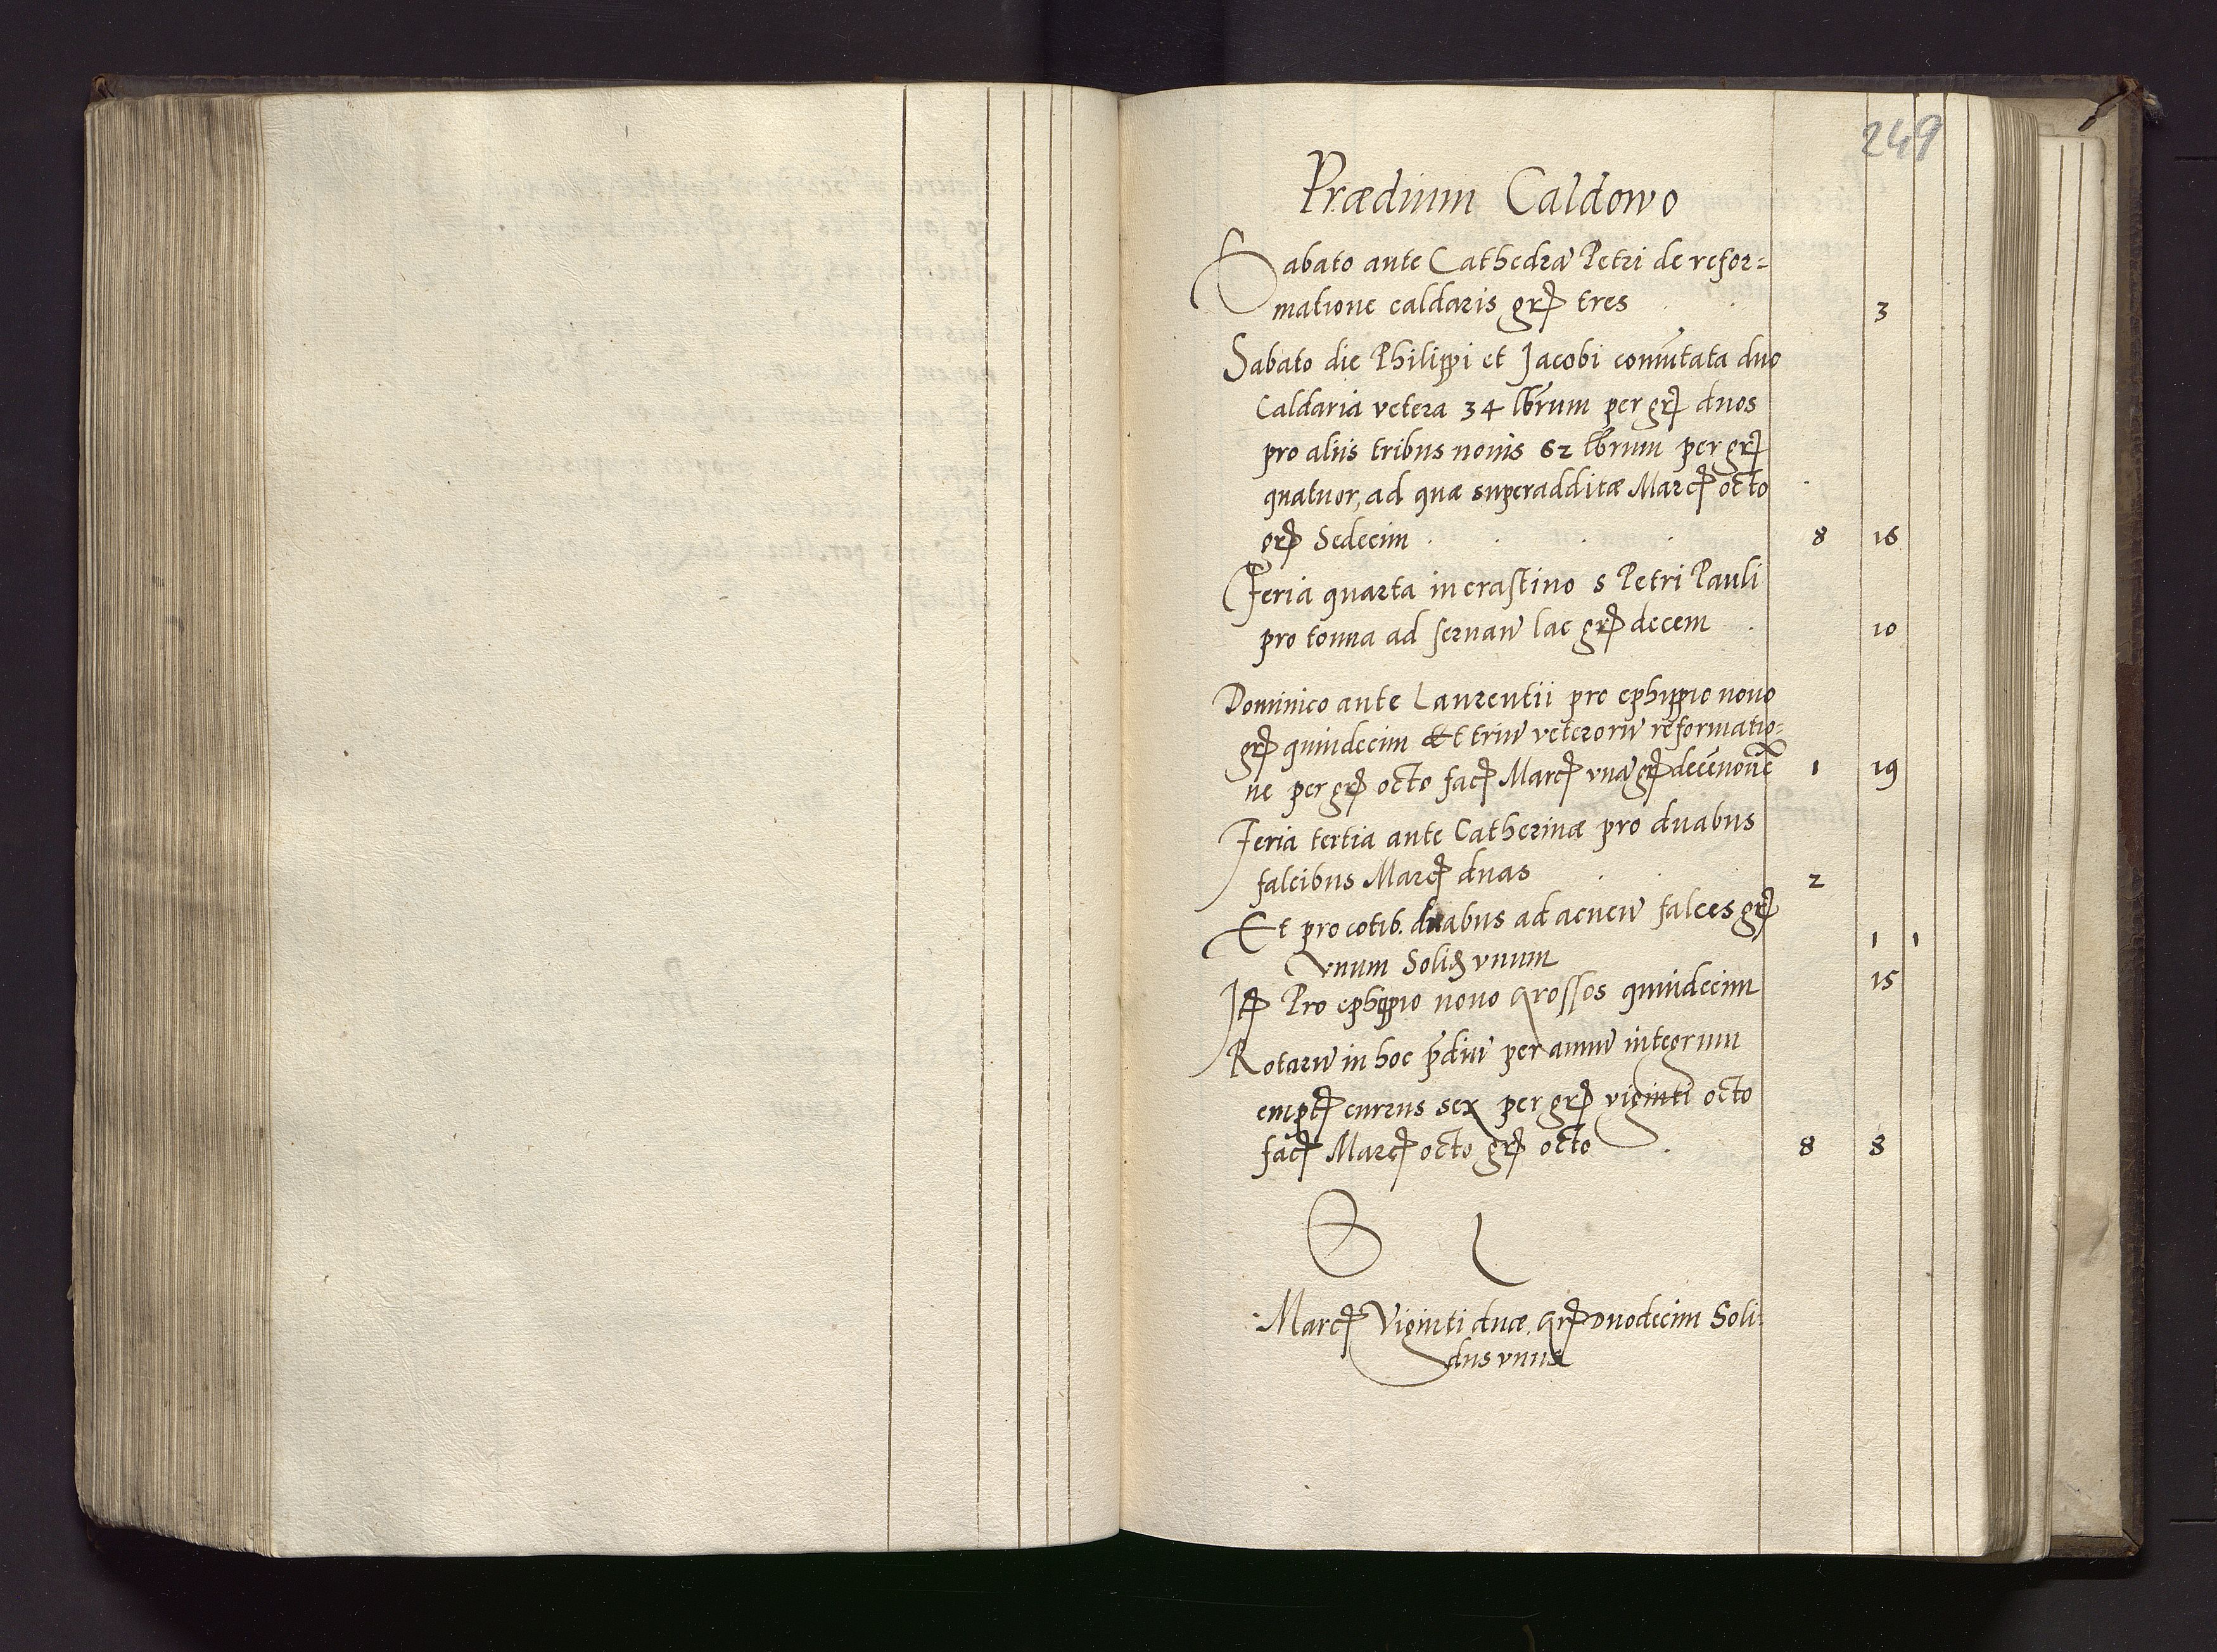 249
Prædium Caldowo
Sabato ante Cathedrā Petri de refor=
matione caldaris grꝭ tres 3
Sabato die Philippi et Jacobi comūtata duo
Caldaria vetera 34 lbrum per grꝭ duos
pro aliis tribus nouis 62 lbrum per grꝭ
quatuor, ad quæ superadditæ Marcꝭ octo
grꝭ Sedecim 8 16
Feria quarta in crastino s Petri Pauli
pro tonna ad seruan̄ lac grꝭ decem 10
Dominico ante Laurentii pro ephippio nouo
grꝭ quindecim Et triū veterorū reformatio=
ne per grꝭ octo facꝭ Marcꝭ vnā grꝭ decēnouē 1 19
Feria tertia ante Catherinæ pro duabus
falcibus Marcꝭ duas 2
Et pro cotib. duabus ad acuen̄ falces grꝭ
vnum Solid vnum 1 1
Itꝭ Pro ephippio nouo Grossos quindecim 15
Rotarū in hoc p̄diū per annū integrum
emptꝭ currus sex per grꝭ viginti octo
facꝭ Marcꝭ octo grꝭ octo 8 8
Marcꝭ Viginti duæ. Grꝭ Duodecim Soli=
dus vnus